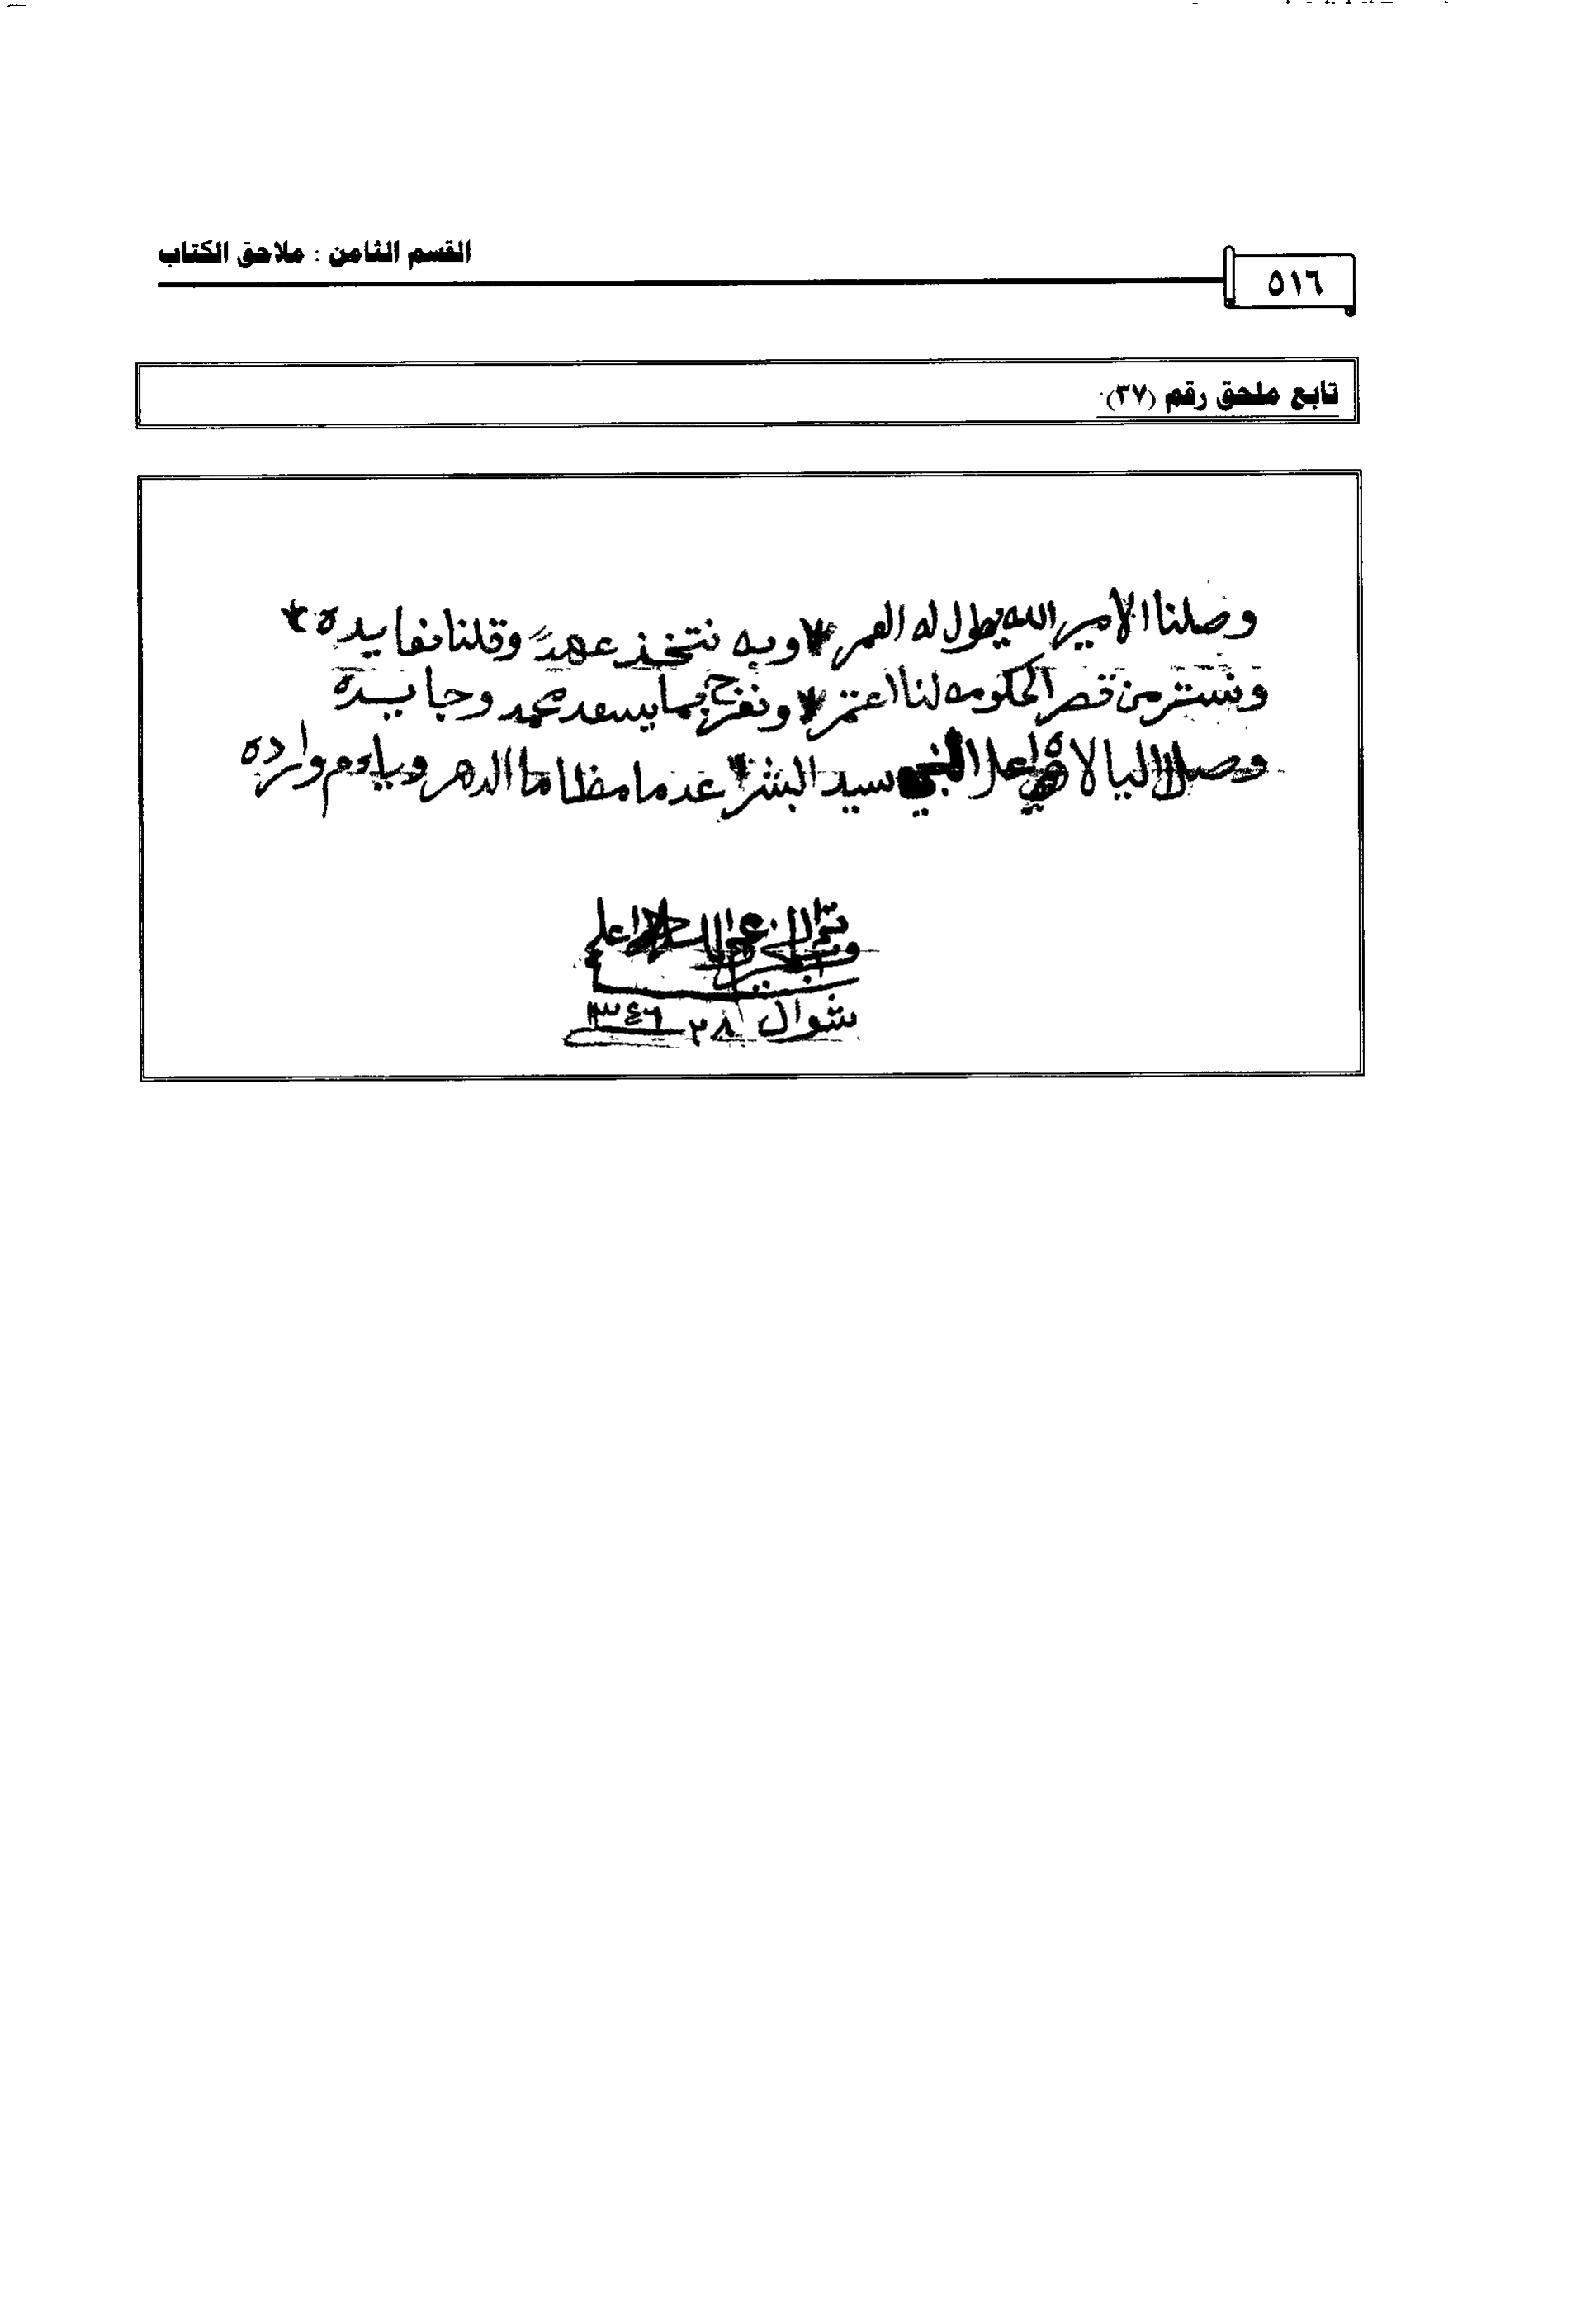 القسم الثامن : ملاحق الكتاب
٥١٦
تابع ملحق رقم (٣٧):
وصلنا الامير الله يطول له العمر * وبه نتخذ عهدً وقلنا نفايده *
ونستر من قصر الحكومه لنا اعتمر * ونفرح بما يسعد محمد وجايده
وصل اليا لاهي اعلا النبي سيد البشر * عد ما مظا ما الدهر وياءم وارده
تم
شوال ٢٨ ١٣٤٦